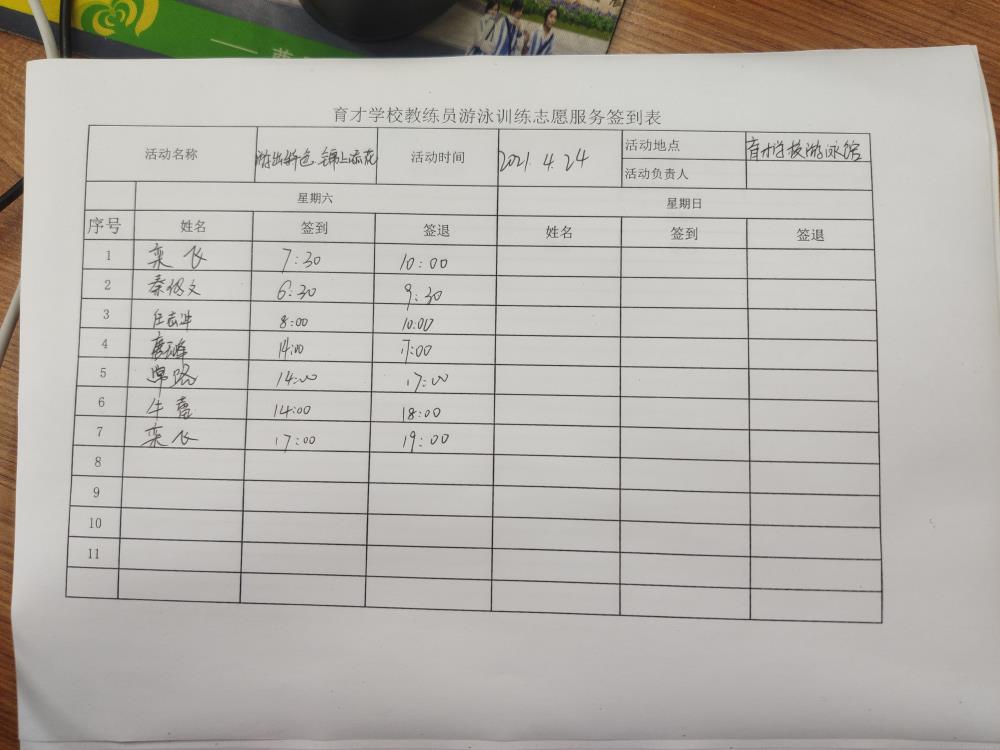 育才学校教练员游泳训练志愿服务签到表
活动名称 游出特色 锦上添花 活动时间 2021.4.24 活动地点 育才学校游泳馆
活动负责人
星期六 星期日
序号 姓名 签到 签退 姓名 签到 签退
1 栾飞 7:30 10:00
2 秦 文 6:30 9:30
3 任志冲 8:00 10:00
4 14:00 17:00
5 常路 14:00 17:00
6 牛蕾 14:00 18:00
7 栾飞 17:00 19:00
8
9
10
11